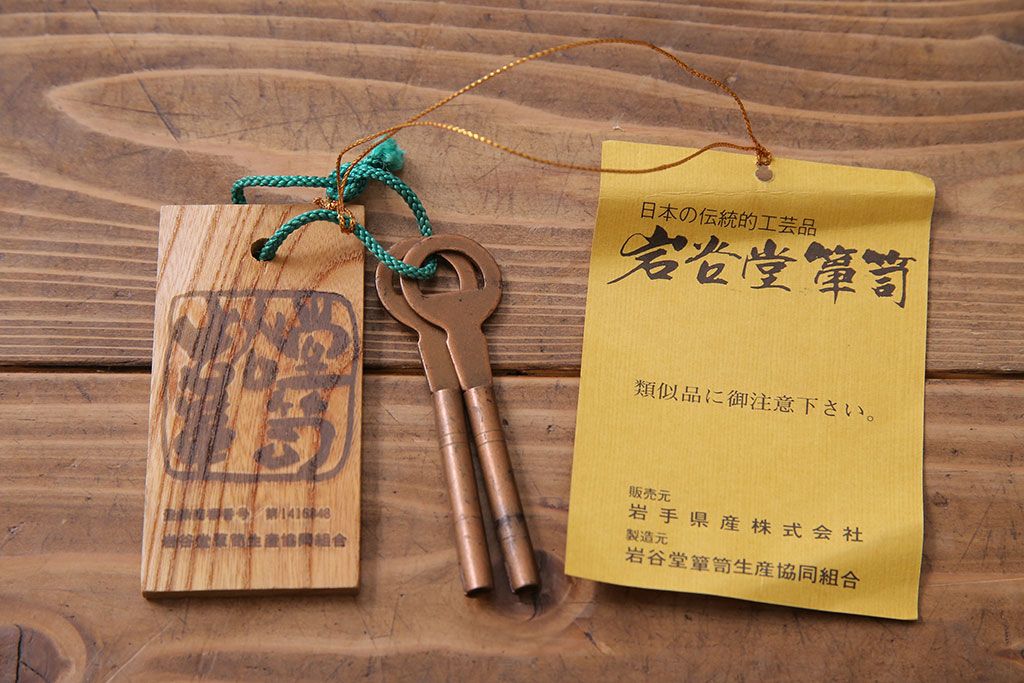 岩谷堂
簞笥
第1416848
岩谷堂簞笥生産協同組合
日本の伝統的工芸品
岩谷堂簞笥
類似品に御注意下さい。
販売元
岩手県産株式会社
製造元
岩谷堂簞笥生産協同組合